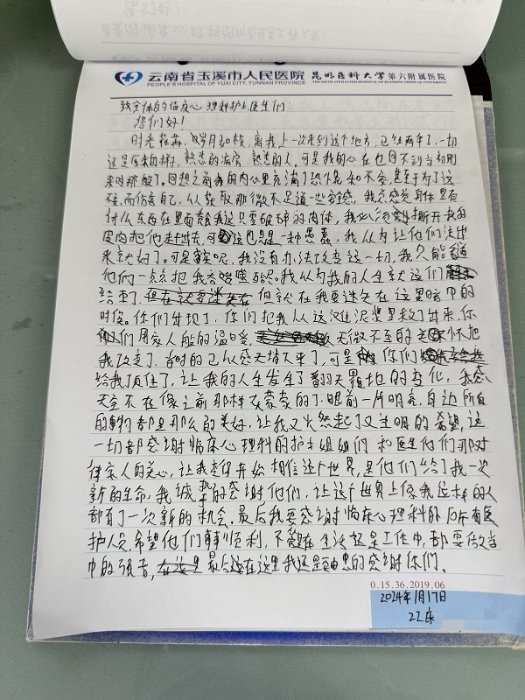 云南省玉溪市人民医院 昆明医科大学第六附属医院
PEOPLE'S HOSPITAL OF YUXI CITY, YUNNAN PROVINCE
致全体的临床心理科护士医生们
您们好!
时光荏苒,岁月如梭,离我上一次来到这个地方,已经两年了,一切
还是原来的样,熟悉的病房 熟悉的人,可是我的心在也回不到当初刚
来时那般了。回想之前我的内心里充满了恐惧和不安,甚至为了这
伤害自己,从获取那微不足道一些安感,我总感觉身体里有
什么东西在里面 我这只要破碎的肉体,我必须 撕开我的
皮肉把他 出去,可 这也是一种愚蠢,我以为让他们流出
来就好了。可是 呢,我没有办法改变这一切,我只能 
他们一点点把我吞噬 。我以为我的人生就这们
结束了,但就在我要迷失在这黑暗中的
时候。你们出现了,你们把我从这 泥里 出来,你
们用家人般的温暖, 无微不至的关怀把
我改变了,有时的已从感无措不来了,可是 你们
给我顶住了,让我的人生发生了翻天覆地的变化,我感
天空不在像之前那样灰蒙蒙的了,眼前一片明亮,身边所有
的事物都是那么的美好,让我又 然起了又生明的希望,这
一切都感谢临床心理科的护士姐姐们和医生他们那对
待家人的关心,让我 开始相信这个世界,是他们给了我一次
新的生命,我诚挚的感谢他们,让这个世界上像我这样的人
都有了一次新的机会,最后我要感谢临床心理科的所有医
护人员,希望他们事事顺利,不管在生活还是工作中,都要做当
中的强者, 最后还在这里我还是由衷的感谢你们。
0.15.36.2019.06
2024年1月17日
22床